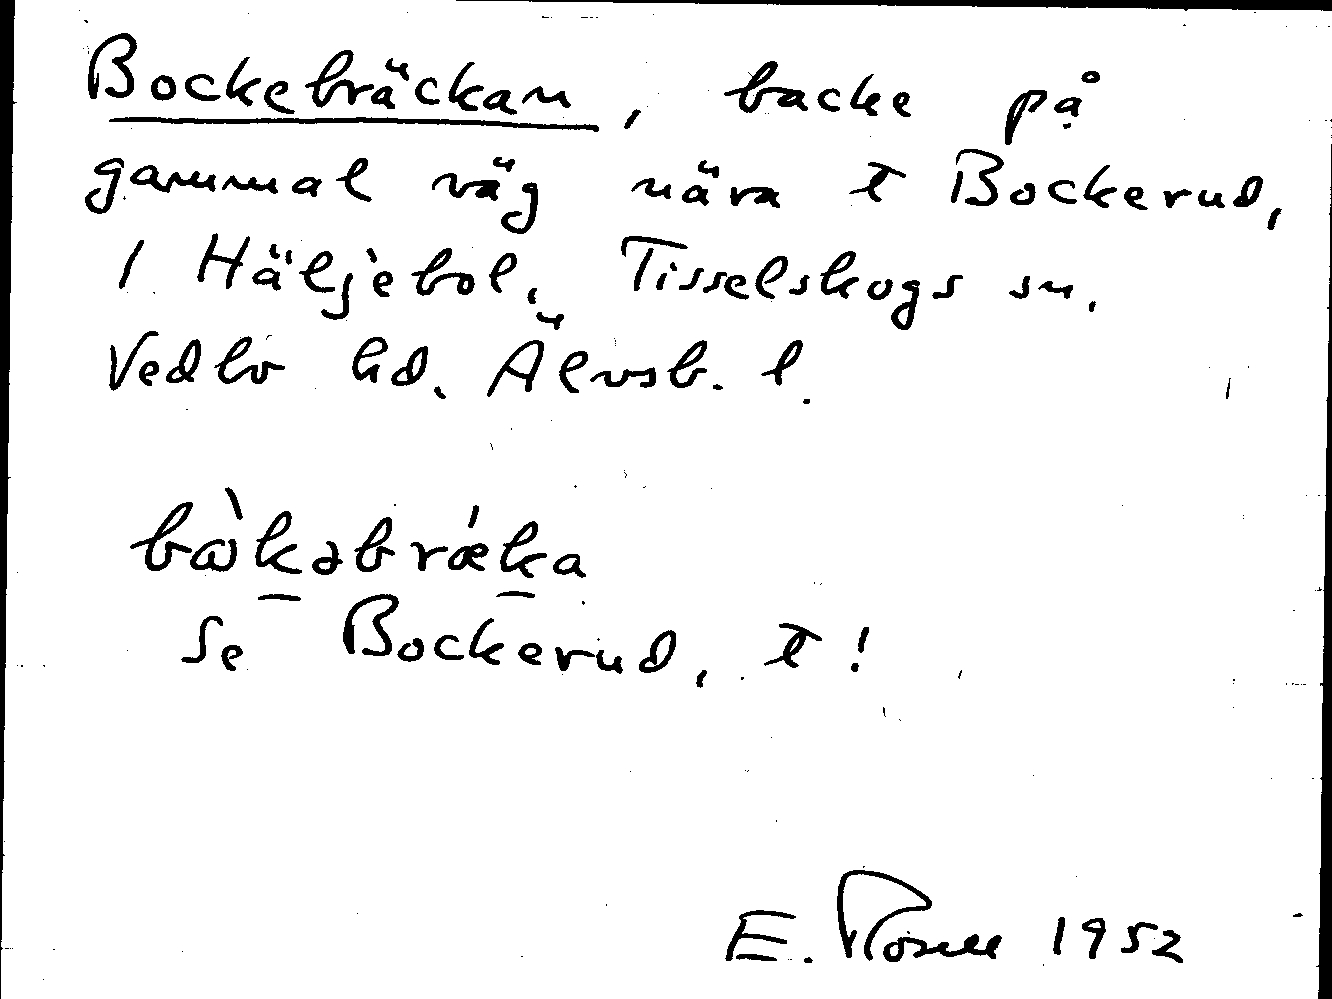 Bockebräckan, backe på
gammal väg nära t Bockerud,
1 Häljebol, Tisselskogs sn.
Vedbo hd. Älvsb. l.
bὼkəbrǽka
Se Bockerud, t!
E. Rosell 1952